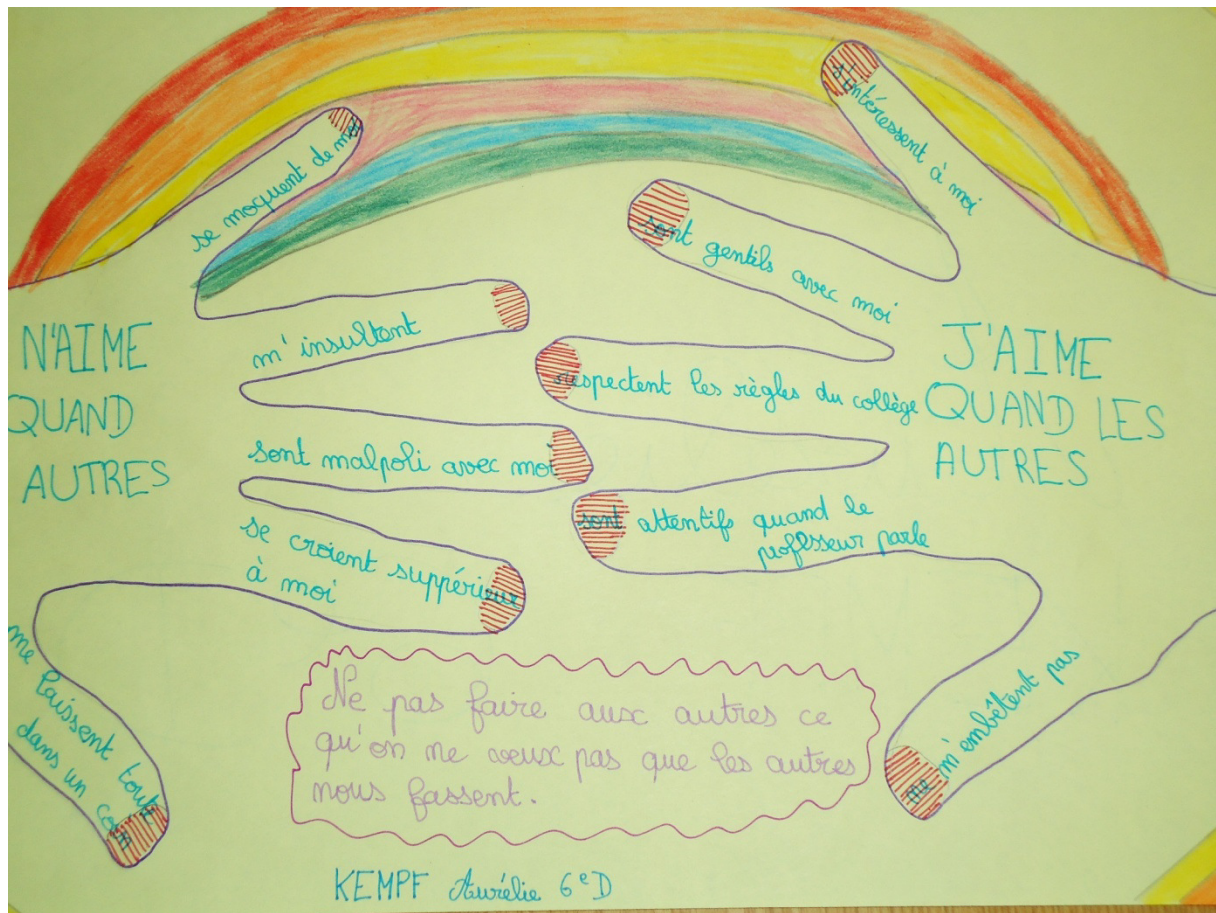 N'AIME
QUAND
AUTRES
se moquent de moi
m'insultent
sont malpoli avec moi
se croient suppérieur
à moi
me laissent toute
dans un coin
J'AIME
QUAND LES
AUTRES
s'intéressent à moi
sont gentils avec moi
respectent les règles du collège
sont attentifs quand le
professeur parle
ne m'embêtent pas
Ne pas faire aux autres ce
qu'on ne veux pas que les autres
nous fassent.
KEMPF Aurélie 6eD